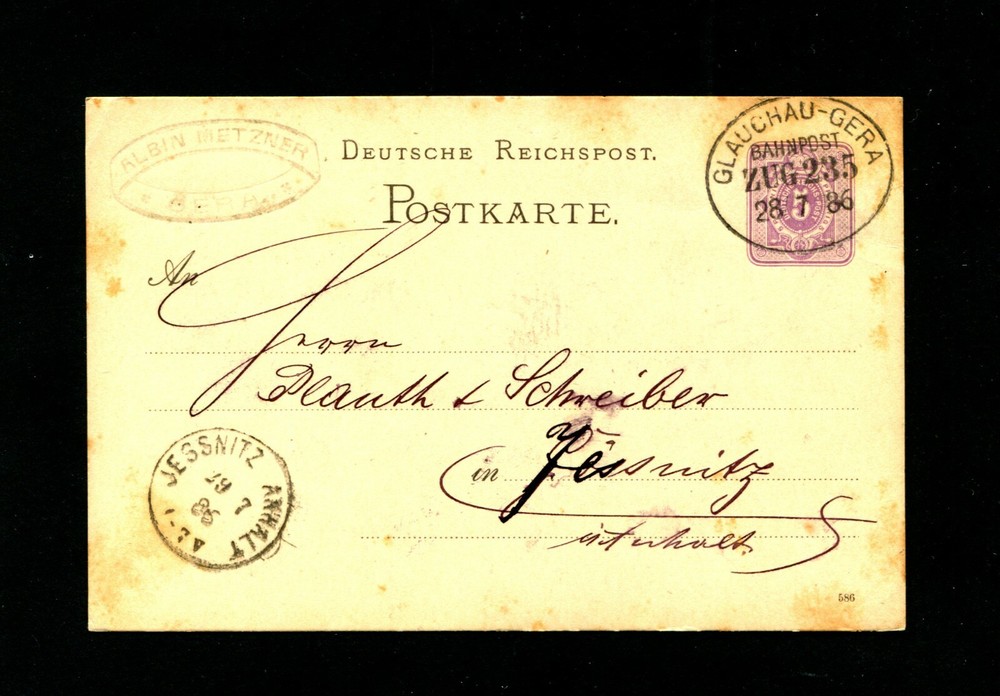 ALBIN METZNER
GERA
DEUTSCHE REICHSPOST.
POSTKARTE.
GLAUCHAU-GERA
BAHNPOST
ZUG 235
28 7 86
5
An
Herrn
Plauth & Schreiber
in Jessnitz
i/Anhalt
JESSNITZ
29 7
86
ANHALT
586